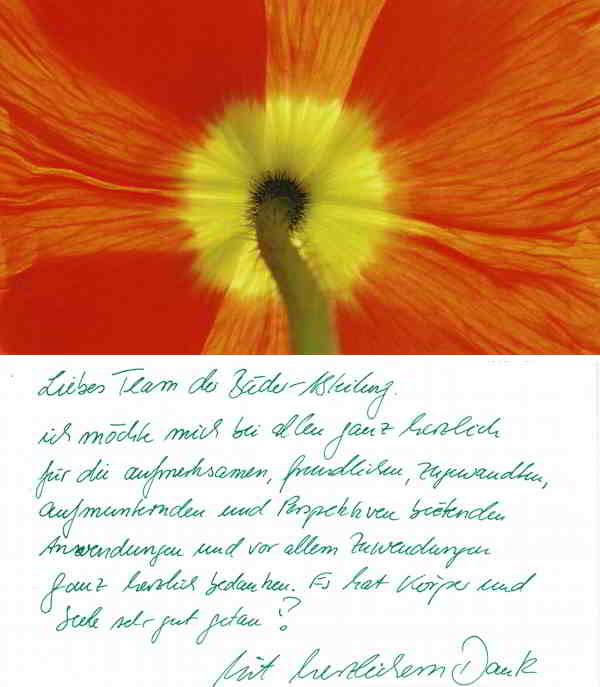 Liebes Team der Bäder-Abteilung.
ich möchte mich bei allen ganz herzlich
für die aufmerksamen, freundlichen, zugewandten,
aufmunternden und Perspektiven bietenden
Anwendungen und vor allem Zuwendungen
ganz herzlich bedanken. Es hat Körper und
Seele sehr gut getan!
Mit herzlichem Dank